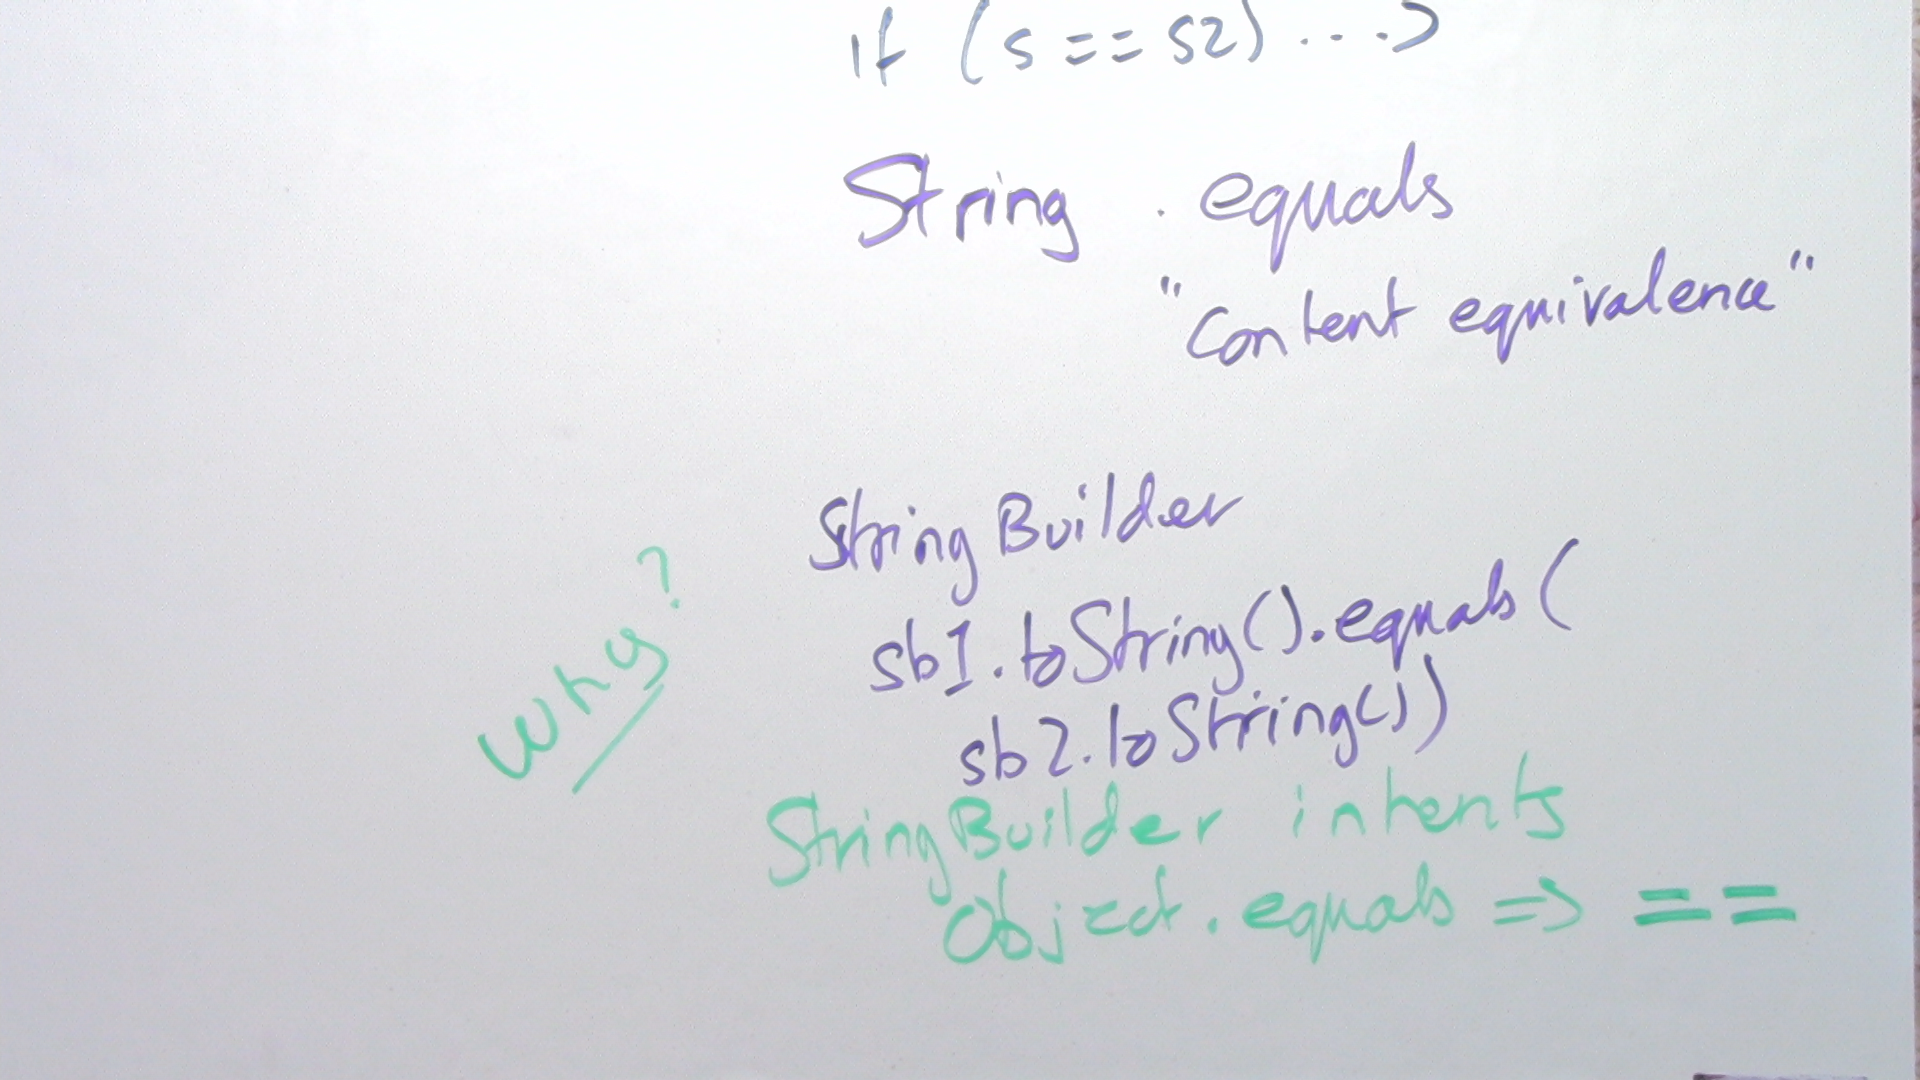 if (s == s2) ...>
String . equals
"Content equivalence"
StringBuilder
sb1.toString().equals(
sb2.toString())
Why?
StringBuilder inherits
Object.equals => ==